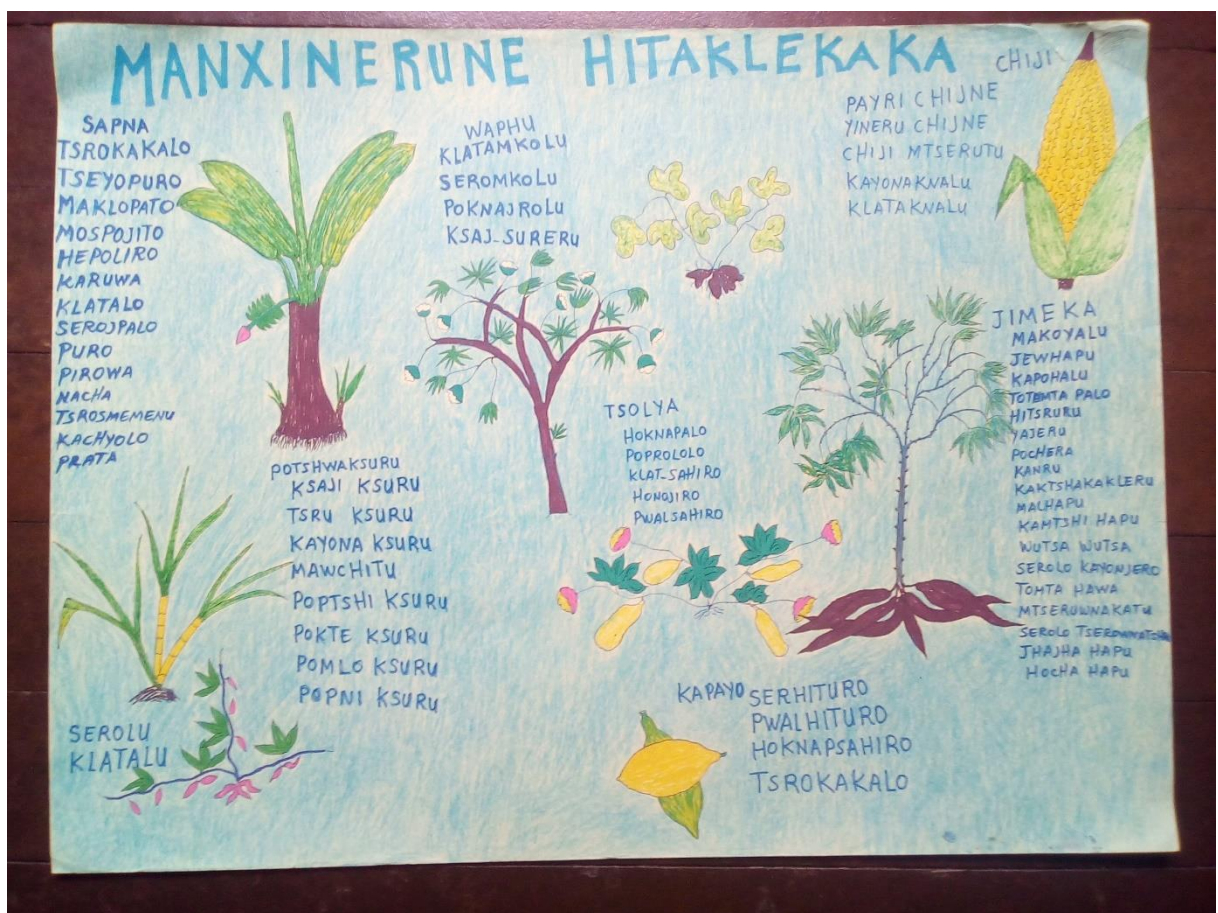 MANXINERUNE HITAKLEKAKA
SAPNA
TSROKAKALO
TSEYOPURO
MAKLOPATO
MOSPOJITO
HEPOLIRO
KARUWA
KLATALO
SEROJPALO
PURO
PIROWA
NACHA
TSROSMEMENU
KACHYOLO
PRATA
WAPHU
KLATAMKOLU
SEROMKOLU
POKNAJROLU
KSAJ-SURERU
CHIJI
PAYRI CHIJNE
YINERU CHIJNE
CHIJI MTSERUTU
KAYONAKNALU
KLATAKNALU
JIMEKA
MAKOYALU
JEWHAPU
KAPOHALU
TOTOMTA PALO
HITSRURU
YAJERU
POCHERA
KANRU
KAKTSHAKAKLERU
MALHAPU
KAMTSHI HAPU
WUTSA WUTSA
SEROLO KAYONJERO
TOMTA HAWA
MTSERUWNAKATU
SEROLO
JHAJHA HAPU
HOCHA HAPU
TSOLYA
HOKNAPALO
POPROLOLO
KLAT-SAHIRO
HONOJIRO
PWALSAHIRO
POTSHWAKSURU
KSAJI KSURU
TSRU KSURU
KAYONA KSURU
MAWCHITU
POPTSHI KSURU
POKTE KSURU
POMLO KSURU
POPNI KSURU
SEROLU
KLATALU
KAPAYO
SERHITURO
PWALHITURO
HOKNAPSAHIRO
TSROKAKALO